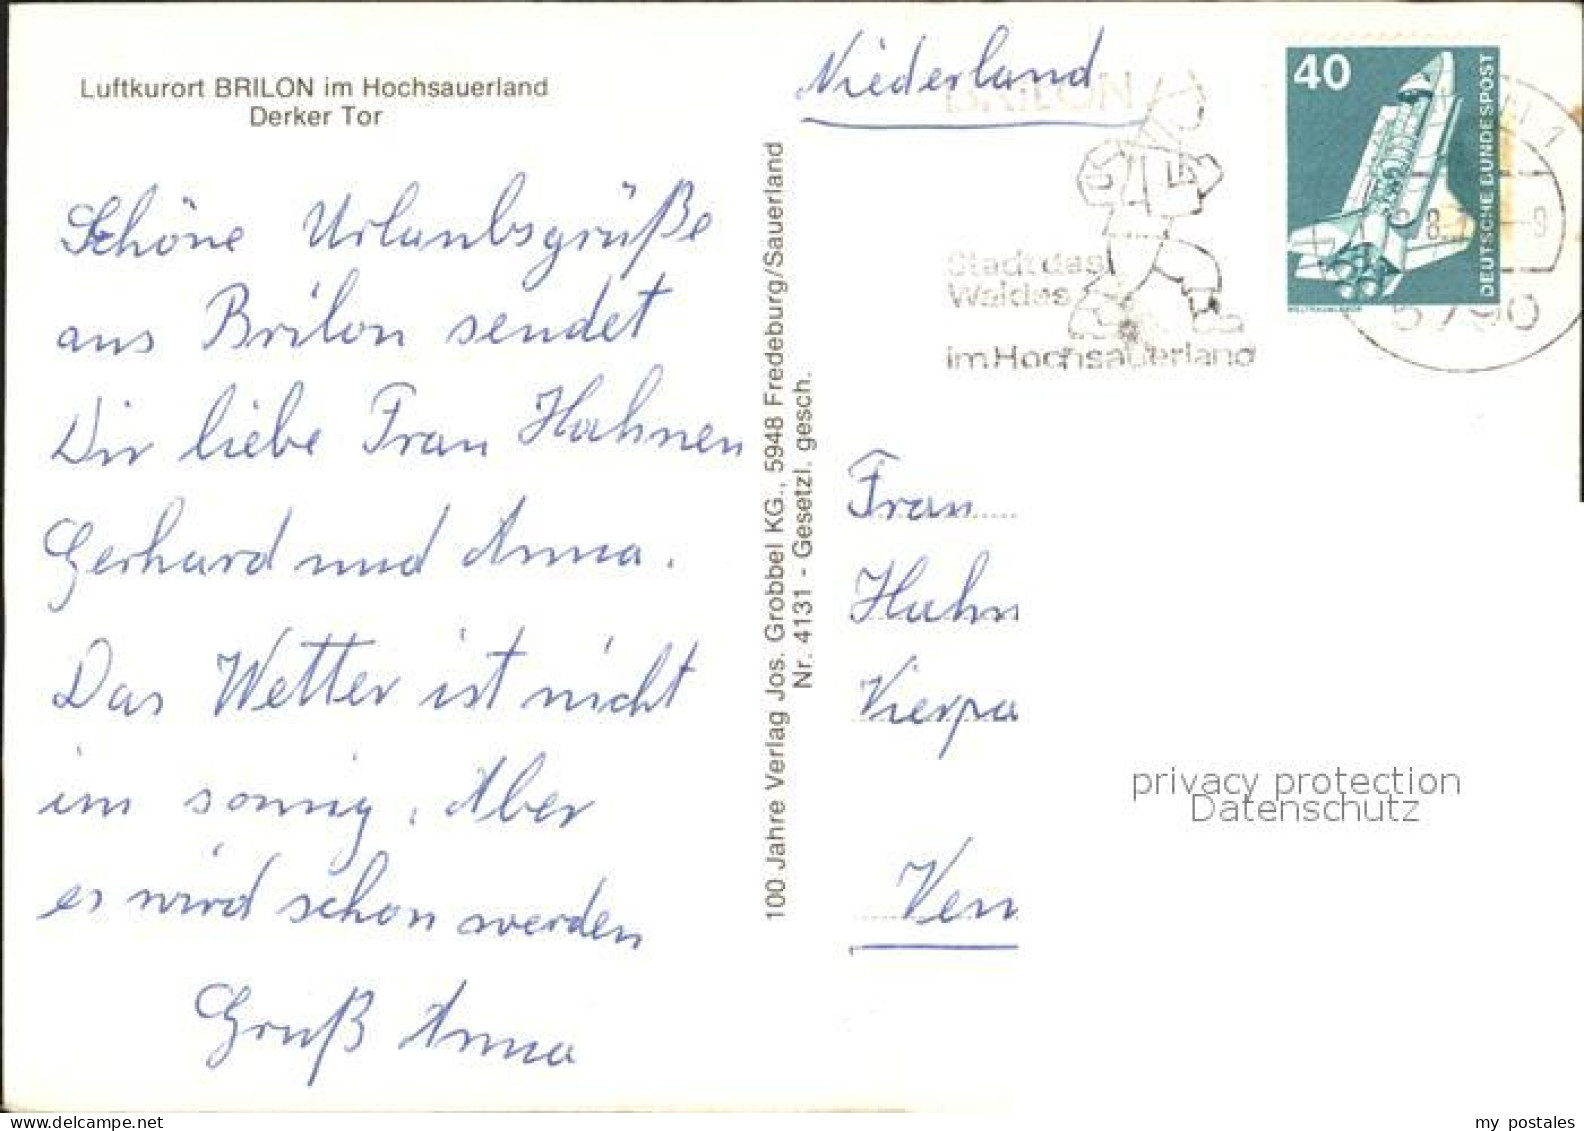 Luftkurort BRILON im Hochsauerland
Derker Tor
Schöne Urlaubsgrüße
aus Brilon sendet
Dir liebe Frau Hahnen
Gerhard und Anna.
Das Wetter ist nicht
im sonnig, Aber
es wird schon werden
Gruß Anna
100 Jahre Verlag Jos. Grobbel KG., 5948 Fredeburg/Sauerland
Nr. 4131 - Gesetzl. gesch.
Niederland
BRILON
Stadt des
Waldes
im Hochsauerland
40
DEUTSCHE BUNDESPOST
WELTRAUMLABOR
5790
Frau
Hahn
Vierpa
Ven
privacy protection
Datenschutz
my postales